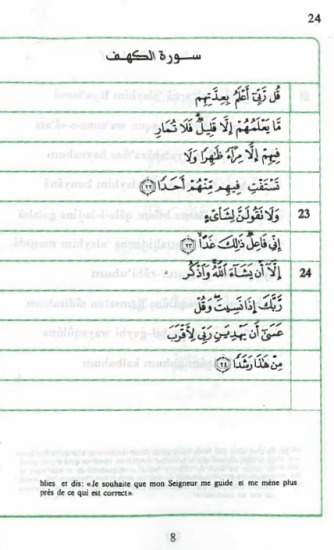 24
سورة الكهف
قُل رَّبِّىٓ أَعْلَمُ بِعِدَّتِهِم
مَّا يَعْلَمُهُمْ إِلَّا قَلِيلٌ ۗ فَلَا تُمَارِ
فِيهِمْ إِلَّا مِرَآءً ظَٰهِرًا وَلَا
تَسْتَفْتِ فِيهِم مِّنْهُمْ أَحَدًا ۝٢٢
وَلَا تَقُولَنَّ لِشَا۟ىْءٍ 23
إِنِّى فَاعِلٌ ذَٰلِكَ غَدًا ۝٢٣
إِلَّآ أَن يَشَآءَ ٱللَّهُ ۚ وَٱذْكُر 24
رَّبَّكَ إِذَا نَسِيتَ وَقُلْ
عَسَىٰٓ أَن يَهْدِيَنِ رَبِّى لِأَقْرَبَ
مِنْ هَٰذَا رَشَدًا ۝٢٤
blies et dis: «Je souhaite que mon Seigneur me guide et me mène plus
près de ce qui est correct».
8